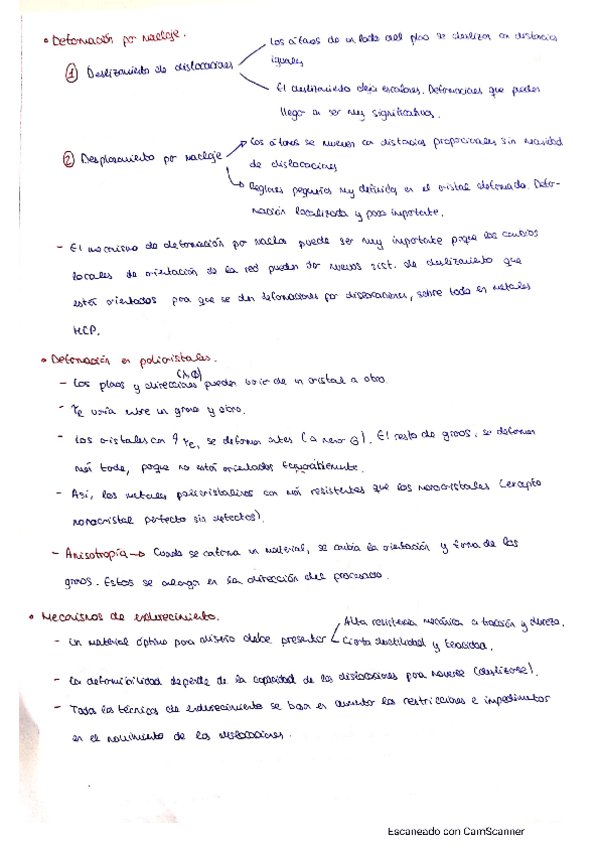 • Deformación por maclaje.
① Deslizamiento de dislocaciones
Los átomos de un lado del plano se deslizan en distancias
iguales
El deslizamiento deja escalones. Deformaciones que pueden
llegar a ser muy significativas.
② Desplazamiento por maclaje
Los átomos se mueven en distancias proporcionales sin necesidad
de dislocaciones
Regiones pequeñas muy definidas en el cristal deformado. Defor-
mación localizada y poco importante.
- El mecanismo de deformación por maclas puede ser muy importante porque los cambios
locales de orientación de la red pueden dar nuevos sist. de deslizamiento que
estén orientados para que se den deformaciones por dislocaciones, sobre todo en metales
HCP.
• Deformación en policristales.
(λ, Φ)
- Los planos y direcciones pueden variar de un cristal a otro.
- τc varía entre un grano y otro.
- Los cristales con ↑ τc, se deforman antes (a menor σ). El resto de granos, se deforman
más tarde, porque no están orientados favorablemente.
- Así, los metales policristalinos son más resistentes que los monocristales (excepto
monocristal perfecto sin defectos).
- Anisotropía → Cuando se conforma un material, se cambia la orientación y forma de los
granos. Estos se alargan en la dirección del procesado.
• Mecanismos de endurecimiento.
- Un material óptimo para diseño debe presentar
Alta resistencia mecánica a tracción y dureza.
Cierta ductilidad y tenacidad.
- La deformabilidad depende de la capacidad de las dislocaciones para moverse (deslizarse).
- Todas las técnicas de endurecimiento se basan en aumentar las restricciones e impedimentos
en el movimiento de las dislocaciones.
Escaneado con CamScanner